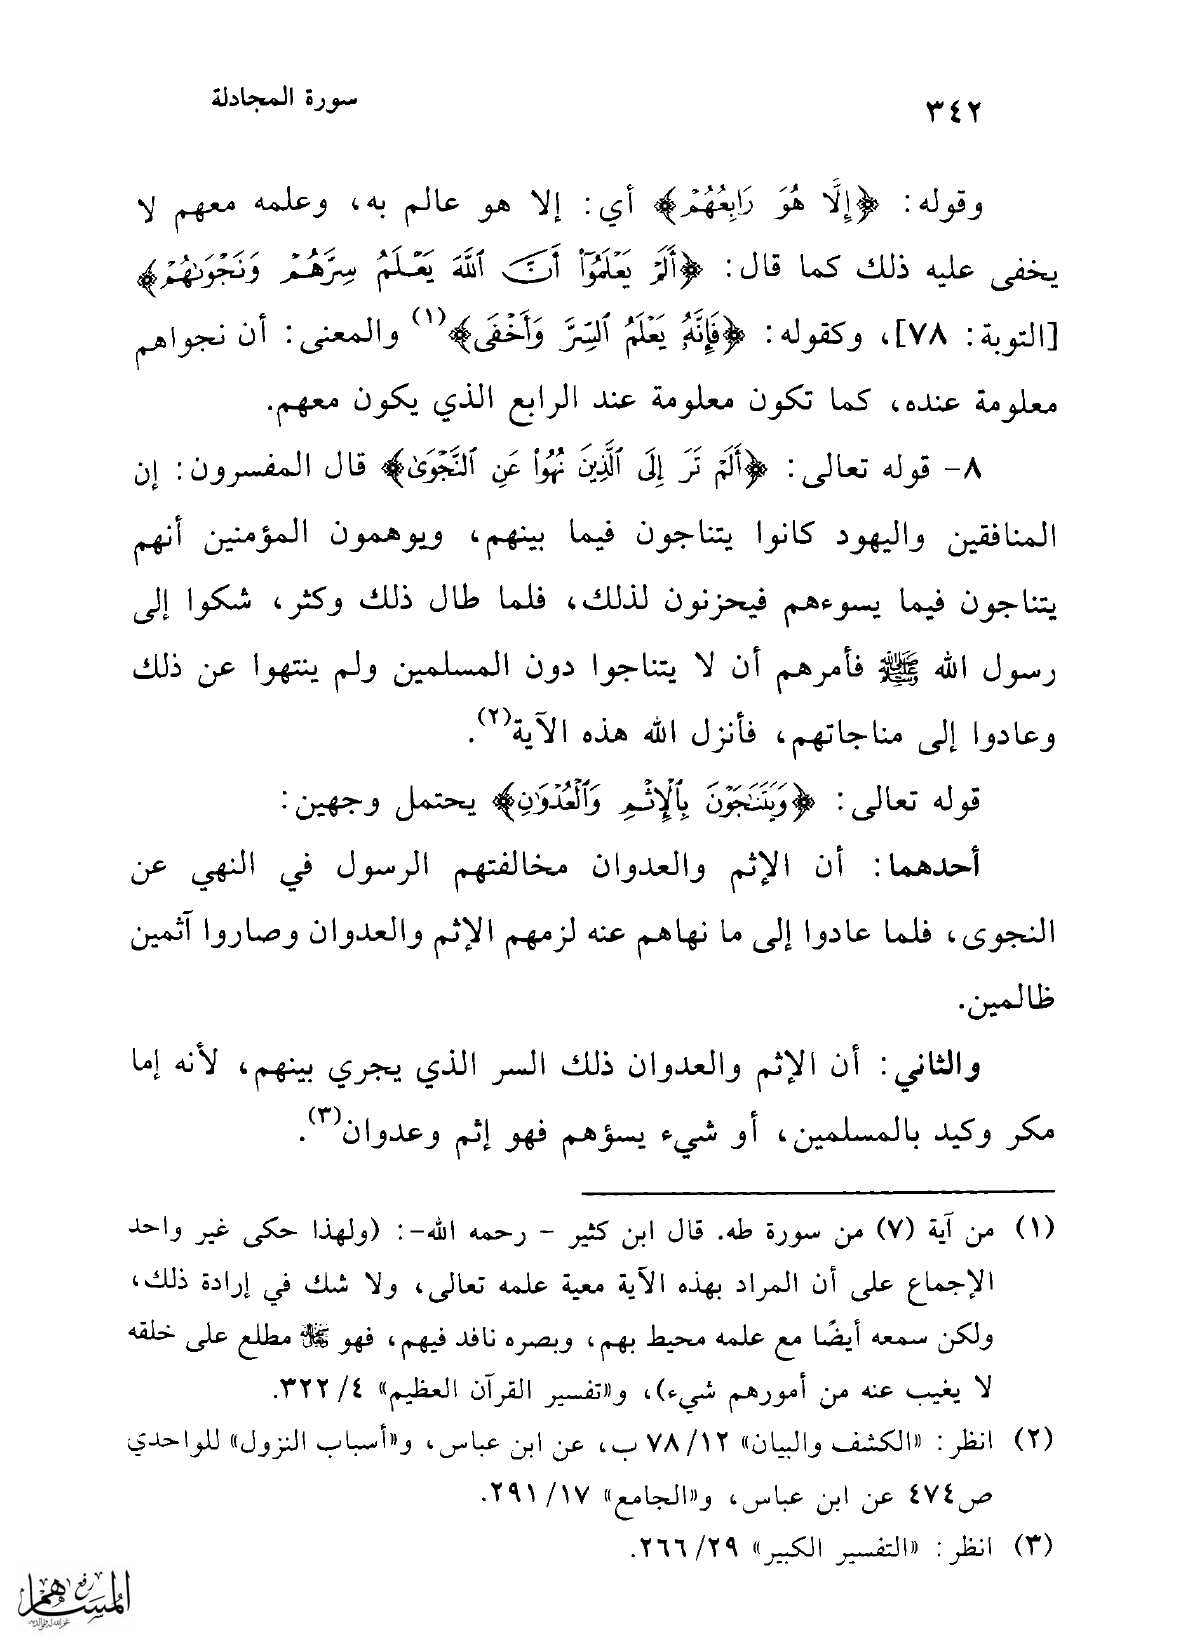 ٣٤٢ سورة المجادلة
وقوله: ﴿إِلَّا هُوَ رَابِعُهُمْ﴾ أي: إلا هو عالم به، وعلمه معهم لا
يخفى عليه ذلك كما قال: ﴿أَلَمْ يَعْلَمُوٓا۟ أَنَّ ٱللَّهَ يَعْلَمُ سِرَّهُمْ وَنَجْوَىٰهُمْ﴾
[التوبة: ٧٨]، وكقوله: ﴿فَإِنَّهُۥ يَعْلَمُ ٱلسِّرَّ وَأَخْفَى﴾(١) والمعنى: أن نجواهم
معلومة عنده، كما تكون معلومة عند الرابع الذي يكون معهم.
٨- قوله تعالى: ﴿أَلَمْ تَرَ إِلَى ٱلَّذِينَ نُهُوا۟ عَنِ ٱلنَّجْوَىٰ﴾ قال المفسرون: إن
المنافقين واليهود كانوا يتناجون فيما بينهم، ويوهمون المؤمنين أنهم
يتناجون فيما يسوءهم فيحزنون لذلك، فلما طال ذلك وكثر، شكوا إلى
رسول الله ﷺ فأمرهم أن لا يتناجوا دون المسلمين ولم ينتهوا عن ذلك
وعادوا إلى مناجاتهم، فأنزل الله هذه الآية(٢).
قوله تعالى: ﴿وَيَتَنَٰجَوْنَ بِٱلْإِثْمِ وَٱلْعُدْوَٰنِ﴾ يحتمل وجهين:
أحدهما: أن الإثم والعدوان مخالفتهم الرسول في النهي عن
النجوى، فلما عادوا إلى ما نهاهم عنه لزمهم الإثم والعدوان وصاروا آثمين
ظالمين.
والثاني: أن الإثم والعدوان ذلك السر الذي يجري بينهم، لأنه إما
مكر وكيد بالمسلمين، أو شيء يسؤهم فهو إثم وعدوان(٣).
(١) من آية (٧) من سورة طه. قال ابن كثير - رحمه الله-: (ولهذا حكى غير واحد
الإجماع على أن المراد بهذه الآية معية علمه تعالى، ولا شك في إرادة ذلك،
ولكن سمعه أيضًا مع علمه محيط بهم، وبصره نافد فيهم، فهو مطلع على خلقه
لا يغيب عنه من أمورهم شيء)، و«تفسير القرآن العظيم» ٤/ ٣٢٢.
(٢) انظر: «الكشف والبيان» ١٢/ ٧٨ ب، عن ابن عباس، و«أسباب النزول» للواحدي
ص٤٧٤ عن ابن عباس، و«الجامع» ١٧/ ٢٩١.
(٣) انظر: «التفسير الكبير» ٢٩/ ٢٦٦.
رفع
المساهم